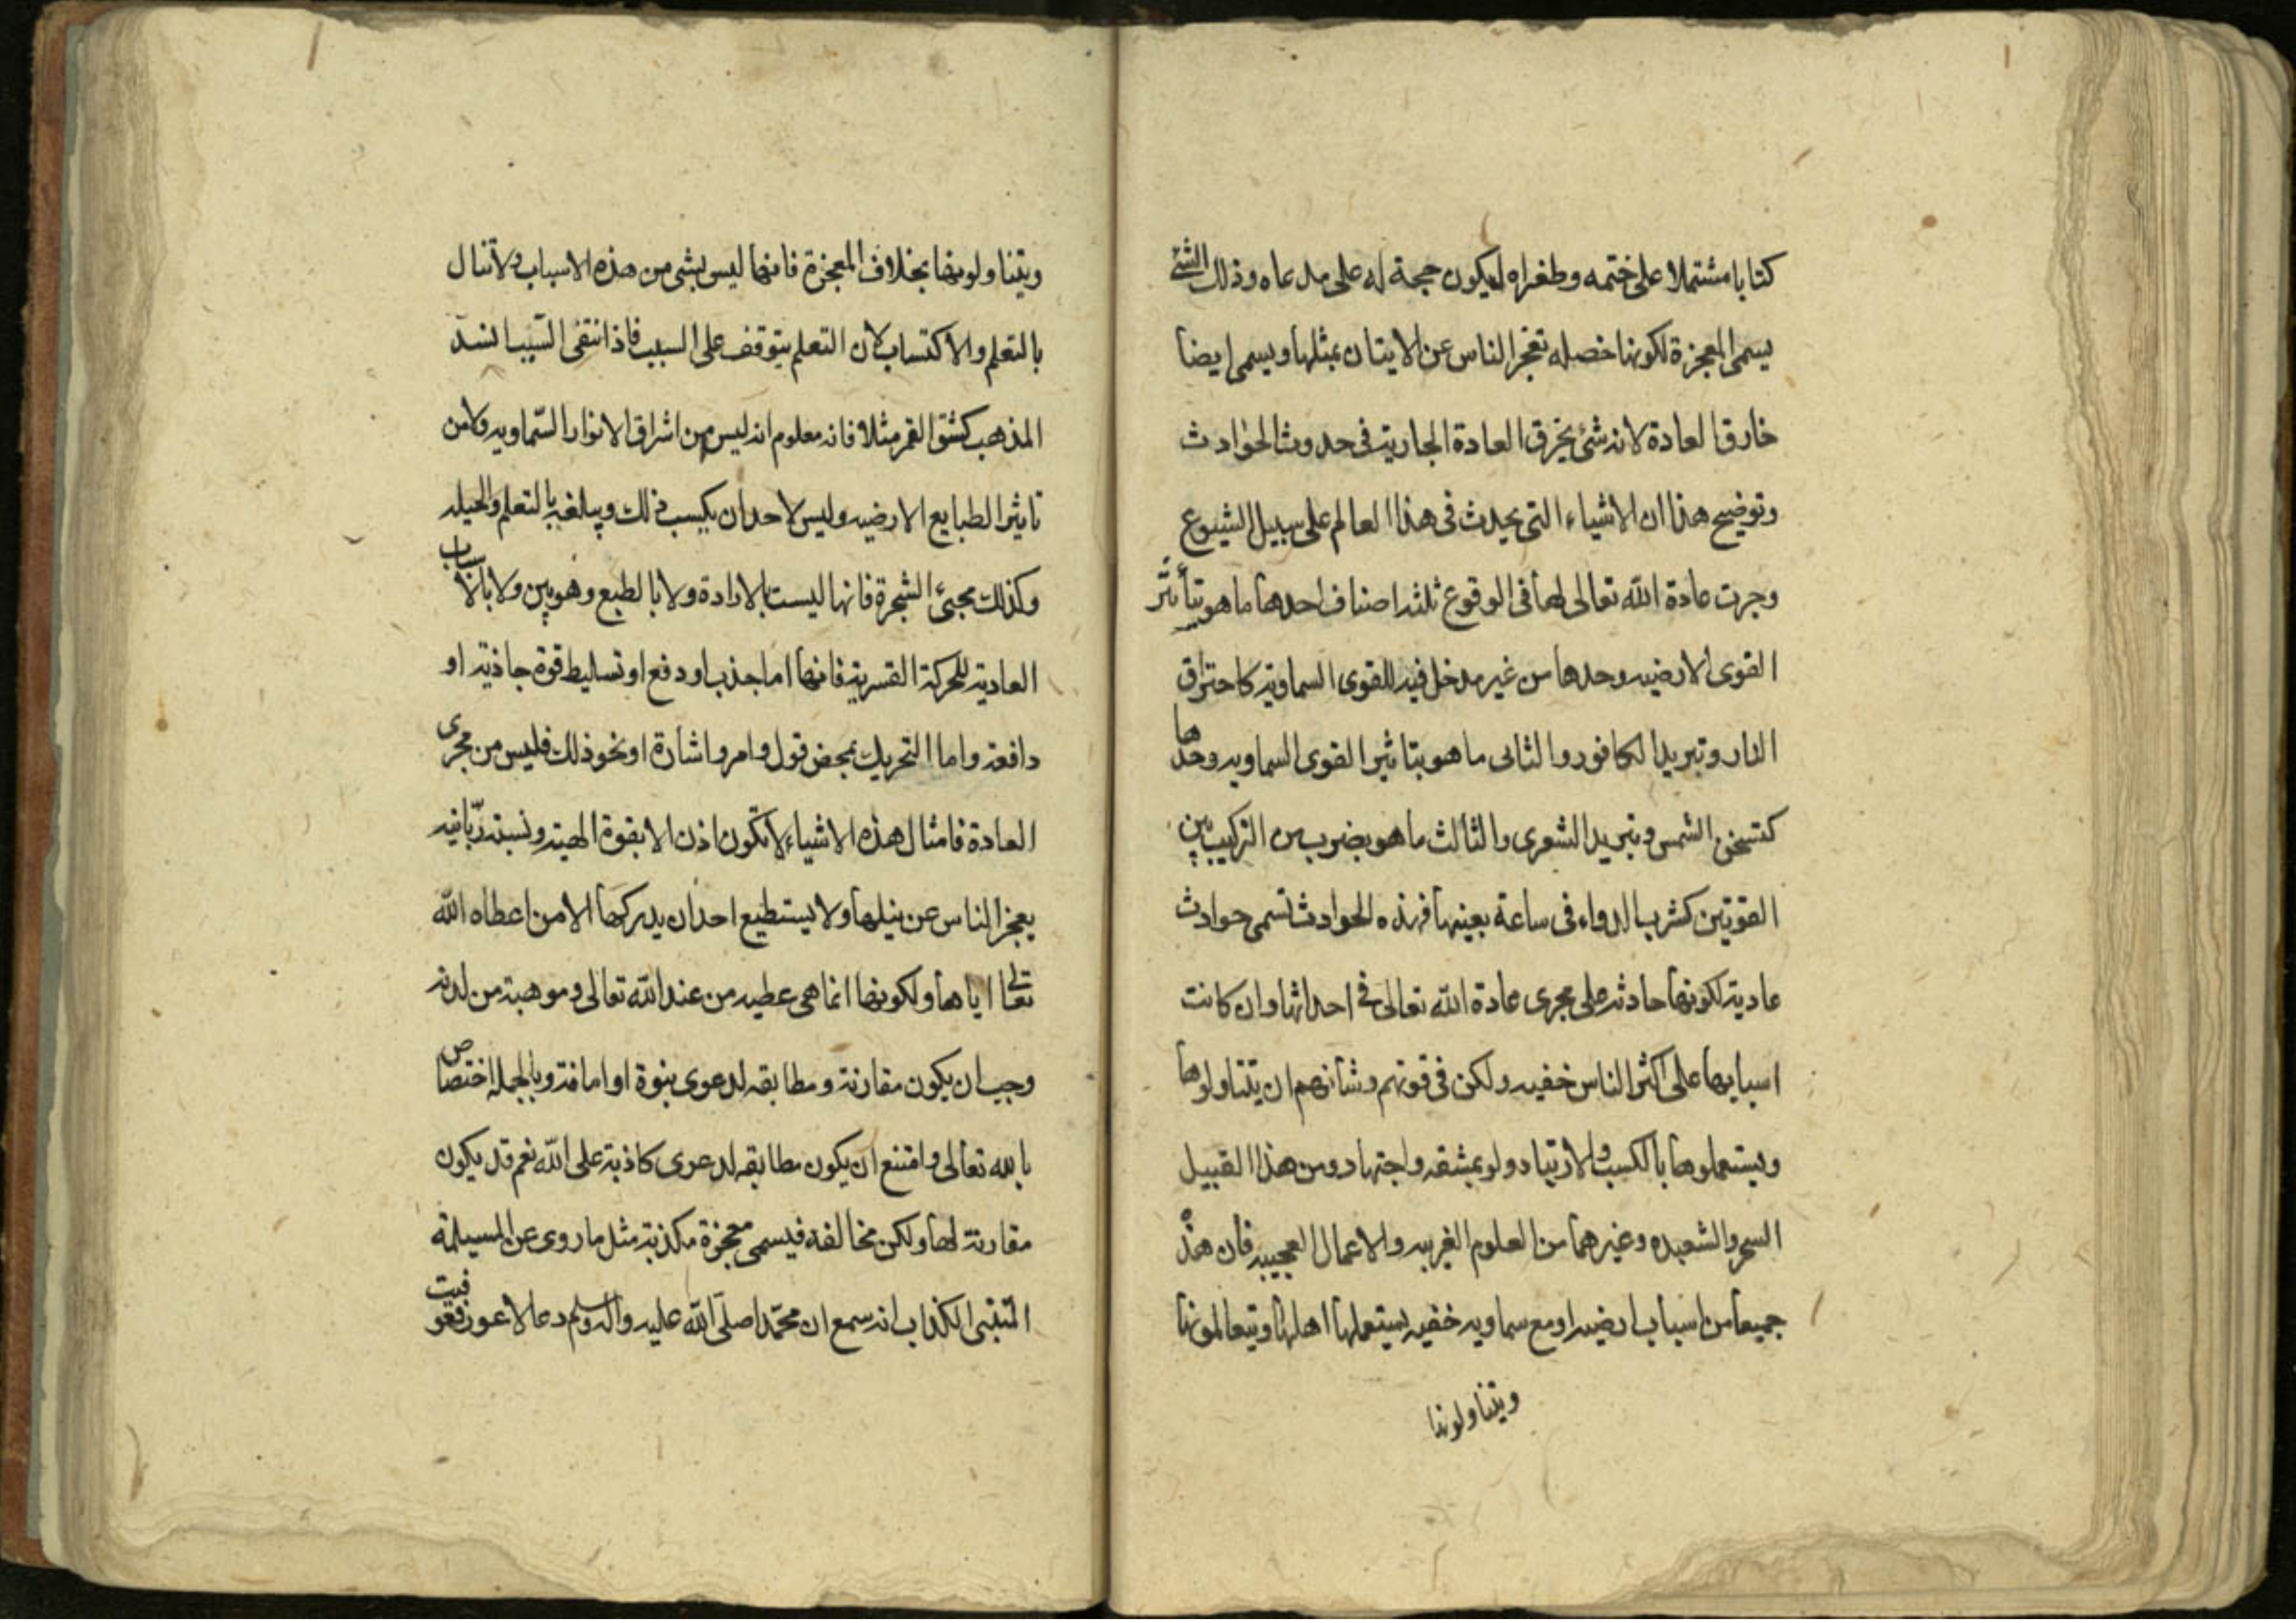 كتابا مشتملا على ختمه وطغراه ليكون حجة له على مدعاه وذلك الشئ
يسمى المعجزة لكونها خصله تعجز الناس عن الايتان بمثلها ويسمى ايضا
خارق العادة لانه شئ يخرق العادة الجارية فى حدوث الحوادث
وتوضيح هذا ان الاشياء التى يحدث فى هذا العالم على سبيل الشيوع
وجرت عادة الله تعالى لها فى الوقوع ثلثه اصناف احدها ما هو بتأثير
القوى الارضيه وحدها من غير مدخل فيه للقوى السماوية كاحتراق
النار وتبريد الكافور والثانى ما هو بتاثير القوى السماويه وحدها
كتسخن الشمس وتبريد الشعرى والثالث ما هو بضرب من التركيب بين
القوتين كشرب الدواء فى ساعة بعينها فهذه الحوادث تسمى حوادث
عادية لكونها حادثه على مجرى عادة الله تعالى فى احداثها وان كانت
اسبابها على اكثر الناس خفيه ولكن فى قوتهم وشانهم ان يتناولوها
ويستعملوها بالكسب والارتياد ولو بمشقه واجتهاد ومن هذا القبيل
السحر والشعبده وغيرهما من العلوم الغريبه والاعمال العجيبه فان هذه
جميعا من اسباب ارضيه او مع سماويه خفيه يستعملها اهلها ويتعالمونها
ويتناولونها
ويتناولونها بخلاف المعجزة فانها ليس بشى من هذه الاسباب ولا تنال
بالتعلم والاكتساب لان التعلم يتوقف على السبب فاذا انتفى السّبب انسدّ
المذهب كشق القمر مثلا فانه معلوم انه ليس من اشراق الانوار السّماويه ولا من
تاثير الطبايع الارضيه وليس لاحد ان يكسب ذلك ويبلغه بالتعلم والحيله
وكذلك مجئ الشجرة فانها ليست بالارادة ولا بالطبع وهو بين ولا بالاسباب
العادية للحركة القسرية فانها اما جذب او دفع او تسليط قوة جاذبة او
دافعه واما التحريك بمحض قول وامر واشارة او نحو ذلك فليس من مجرى
العادة فامثال هذه الاشياء لا تكون اذن الا بقوة الهية ونسبة ربّانيه
يعجز الناس عن نيلها ولا يستطيع احد ان يدركها الا من اعطاه الله
تعالى اياها ولكونها انما هى عطيه من عند الله تعالى وموهبة من لدنه
وجب ان يكون مقارنة ومطابقه لدعوى بنوة او امامة وبالجمله اختصاص
بالله تعالى وامتنع ان يكون مطابقه لدعوى كاذبة على الله نعم قد يكون
مقارنة لها ولكن مخالفه فيسمى معجزة مكذبة مثل ما روى عن المسيلمة
المتنبى الكذاب انه سمع ان محمّدا صلّى الله عليه واله وسلم دعا لاعور فعوفيت